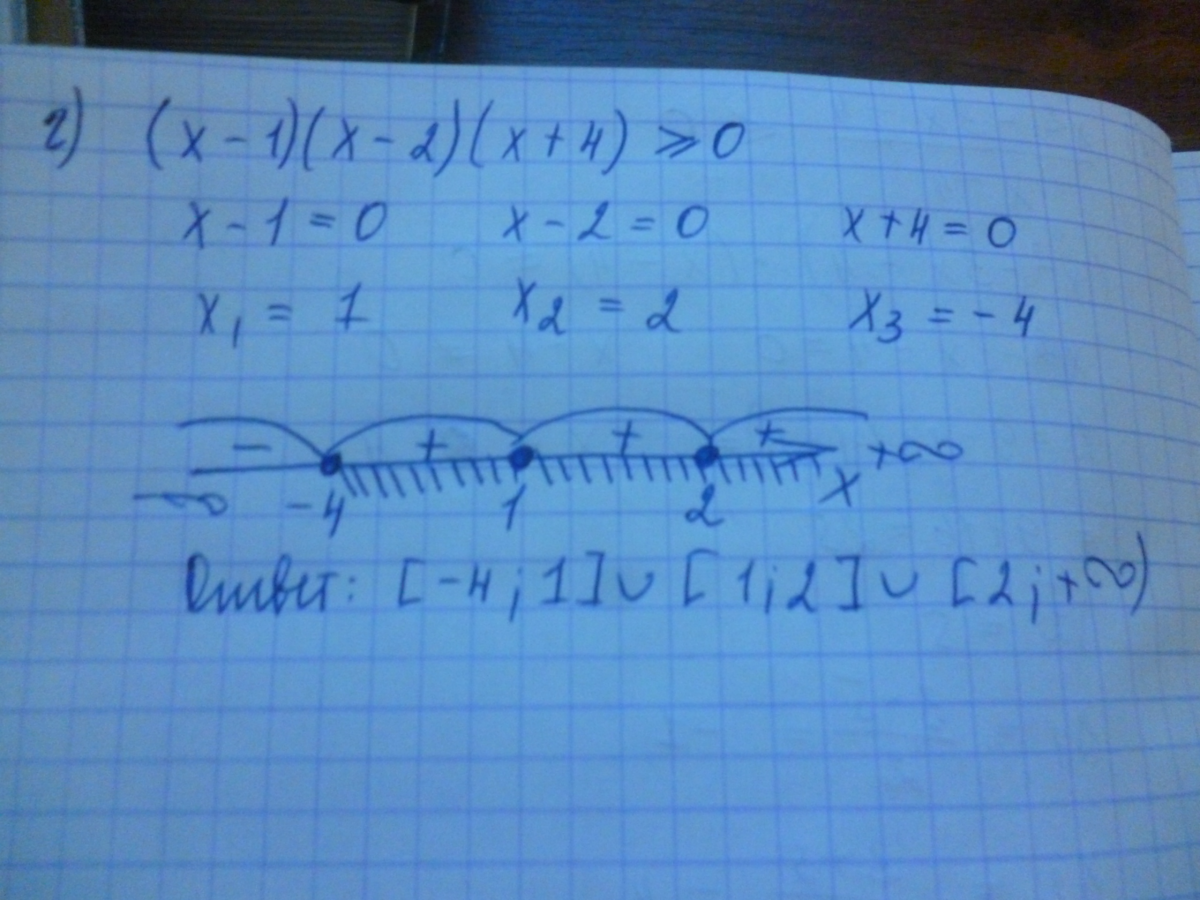 г) (x-1)(x-2)(x+4) ⩾ 0
x-1=0 x-2=0 x+4=0
x₁ = 1 x₂ = 2 x₃ = -4
- + + +
-∞ -4 1 2 x +∞
Ответ: [-4; 1] ∪ [1; 2] ∪ [2; +∞)